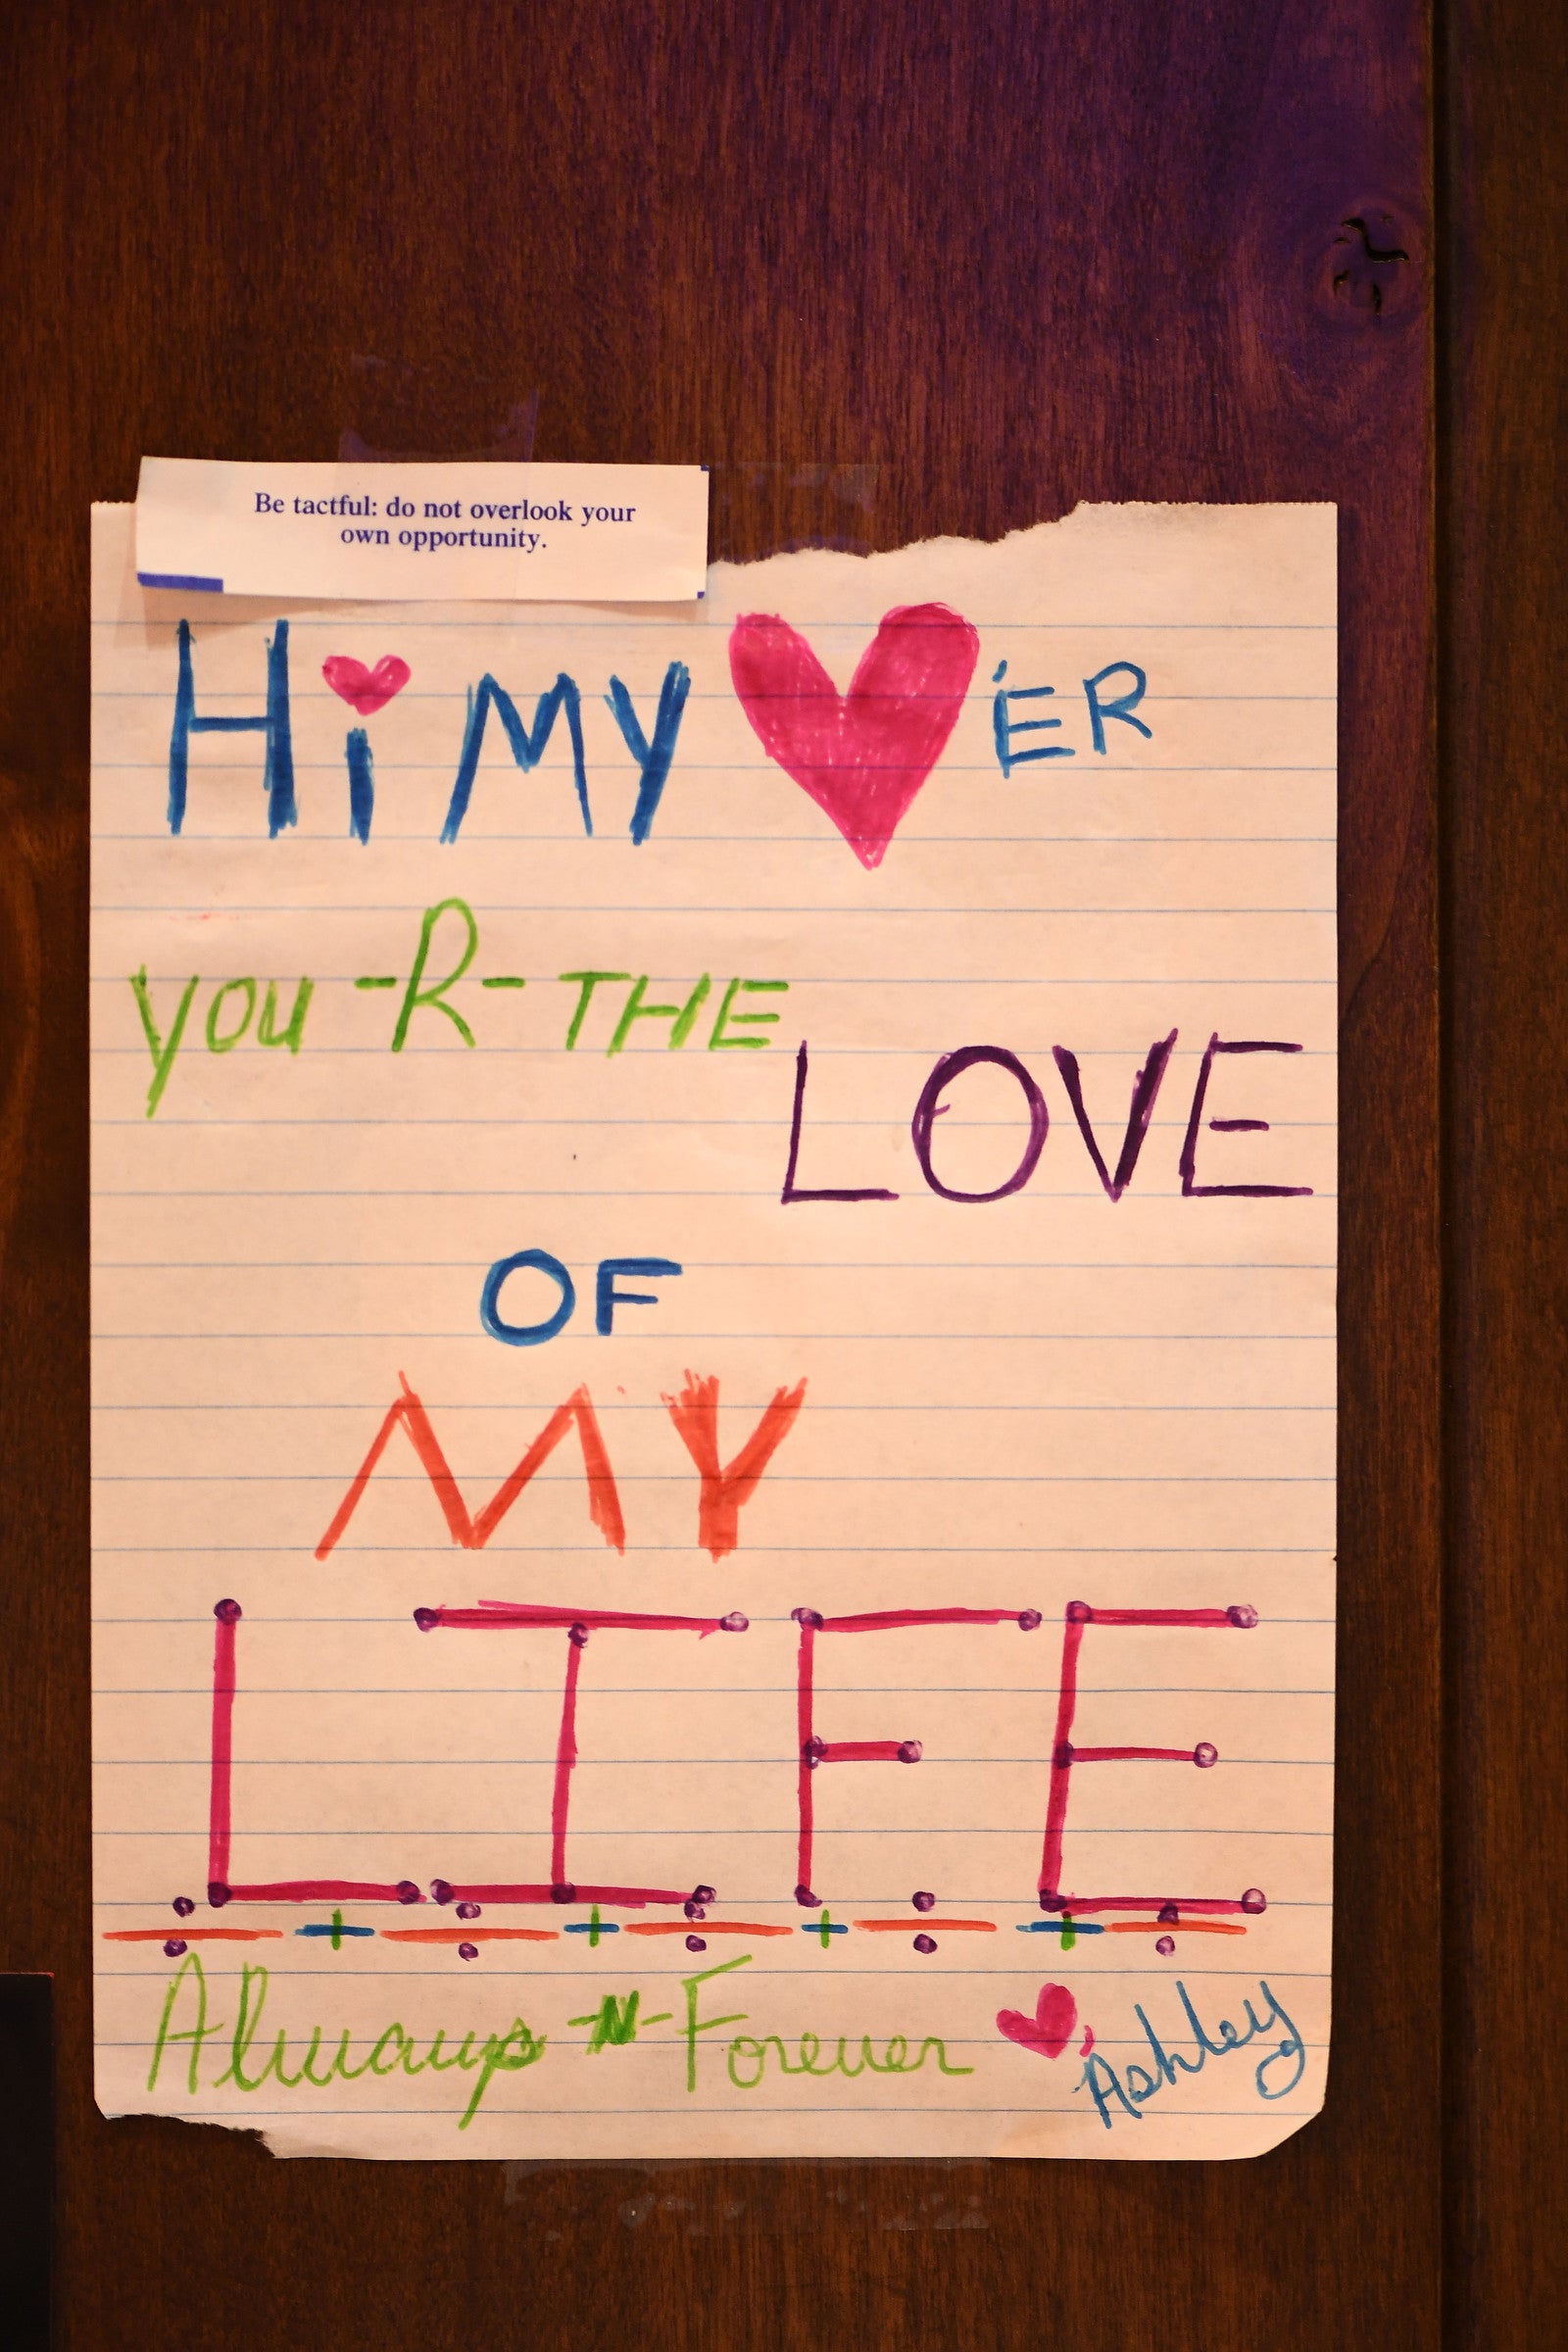 Be tactful: do not overlook your
own opportunity.
Hi MY ♥'ER
you -R- THE
LOVE
OF
MY
LIFE
Always -N- Forever ♥, Ashley